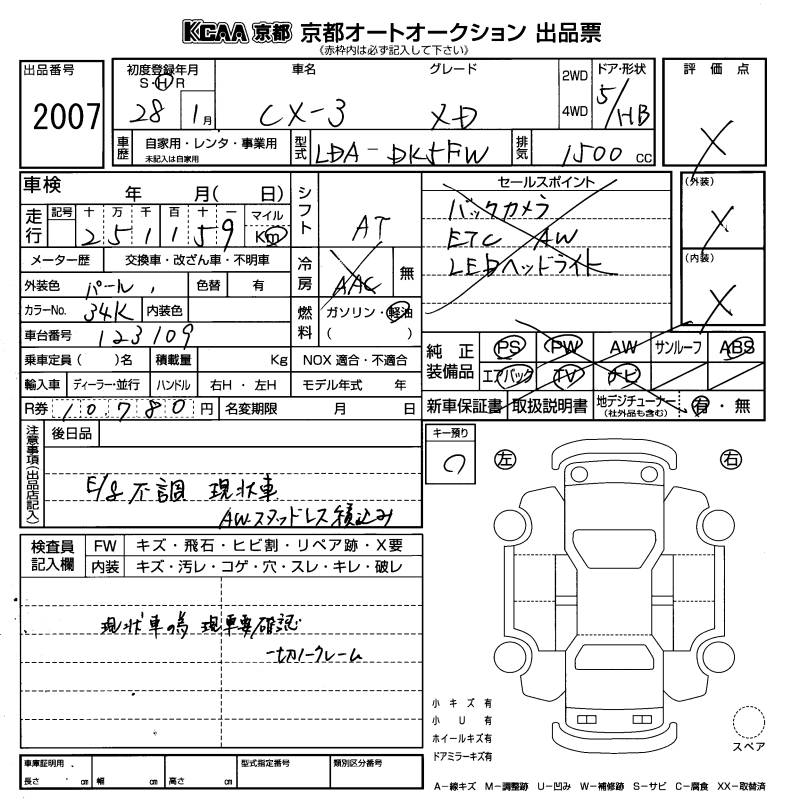 KCAA 京都 京都オートオークション 出品票
《赤枠内は必ず記入して下さい》
出品番号 2007
初度登録年月 S・H・R 28 1月
車名 CX-3
グレード XD
2WD 4WD
ドア・形状 5/HB
評価点 X
車歴 自家用・レンタ・事業用 未記入は自家用
型式 LDA-DK5FW
排気 1500 cc
車検 年 月( 日)
シフト AT
セールスポイント
バックカメラ
ETC AW
LEDヘッドライト
(外装) X
(内装) X
走行 記号 十 万 千 百 十 一 マイル Km
251159
メーター歴 交換車・改ざん車・不明車
冷房 AAC 無
外装色 パール 色替 有
カラーNo. 34K 内装色
燃料 ガソリン・軽油 ( )
車台番号 123109
乗車定員( )名 積載量 Kg NOX 適合・不適合
輸入車 ディーラー・並行 ハンドル 右H・左H モデル年式 年
R券 10,780 円 名変期限 月 日
純正装備品 PS PW AW サンルーフ ABS
エアバック TV ナビ
新車保証書 取扱説明書 地デジチューナー (社外品も含む) 有・無
注意事項(出品店記入)
後日品
E/g不調 現状車
AWスタッドレス積込み
キー預り
左 右
検査員記入欄 FW キズ・飛石・ヒビ割・リペア跡・X要
内装 キズ・汚レ・コゲ・穴・スレ・キレ・破レ
現状車の為 現車要確認
一切ノークレーム
小キズ 有
小U 有
ホイールキズ有
ドアミラーキズ有
スペア
車庫証明用 長さ cm 幅 cm 高さ cm
型式指定番号 類別区分番号
A−線キズ M−調整跡 U−凹み W−補修跡 S−サビ C−腐食 XX−取替済